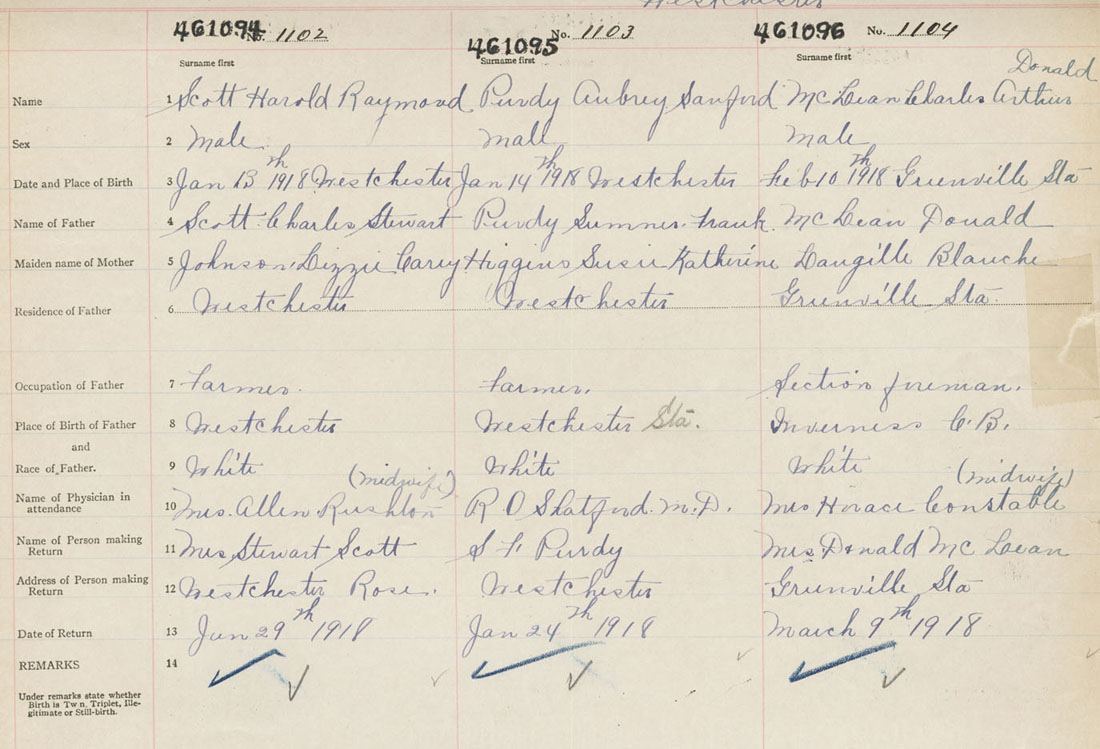 Westchester
461094 No. 1102 461095 No. 1103 461096 No. 1104
Surname first Surname first Surname first
Donald
Name 1 Scott Harold Raymond Purdy Aubrey Sanford McLean Charles Arthur
Sex 2 Male Male Male
Date and Place of Birth 3 Jan 13th 1918 Westchester Jan 14th 1918 Westchester Feb 10th 1918 Greenville Sta
Name of Father 4 Scott Charles Stewart Purdy Sumner Frank. McLean Donald
Maiden name of Mother 5 Johnson Lizzie Carey Higgins Susie Katherine Langille Blanche
Residence of Father 6 Westchester Westchester Greenville Sta.
Occupation of Father 7 Farmer. Farmer. Section foreman.
Place of Birth of Father 8 Westchester Westchester Sta. Inverness C.B.
and
Race of Father. 9 White White White
(midwife) (midwife)
Name of Physician in attendance 10 Mrs. Allen Rushton R O Shatford. M.D. Mrs Horace Constable
Name of Person making Return 11 Mrs Stewart Scott S F Purdy Mrs. Donald McLean
Address of Person making Return 12 Westchester Rose. Westchester Greenville Sta
Date of Return 13 29th 1918 Jan 24th 1918 March 9th 1918
REMARKS 14
Under remarks state whether
Birth is Tw n, Triplet, Ille-
gitimate or Still-birth.